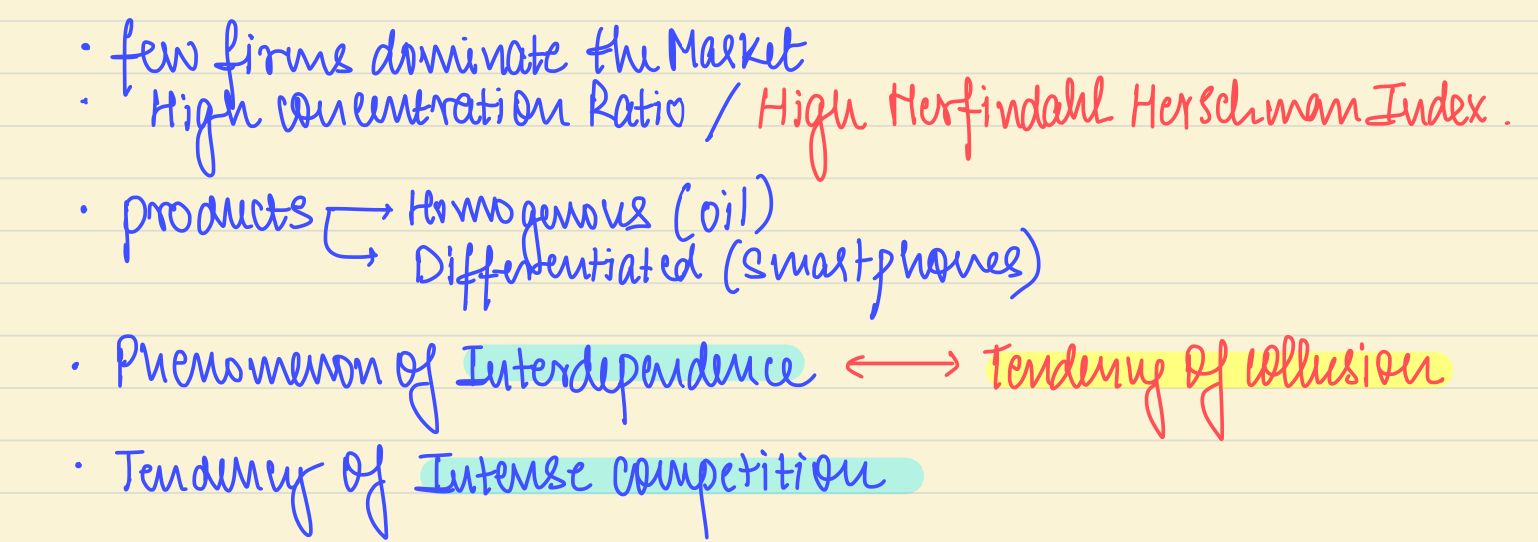 · few firms dominate the Market
· High concentration Ratio / High Herfindahl Herschman Index.
· products → Homogenous (oil)
→ Differentiated (smartphones)
· Phenomenon of Interdependence ↔ Tendency of collusion
· Tendency of Intense competition